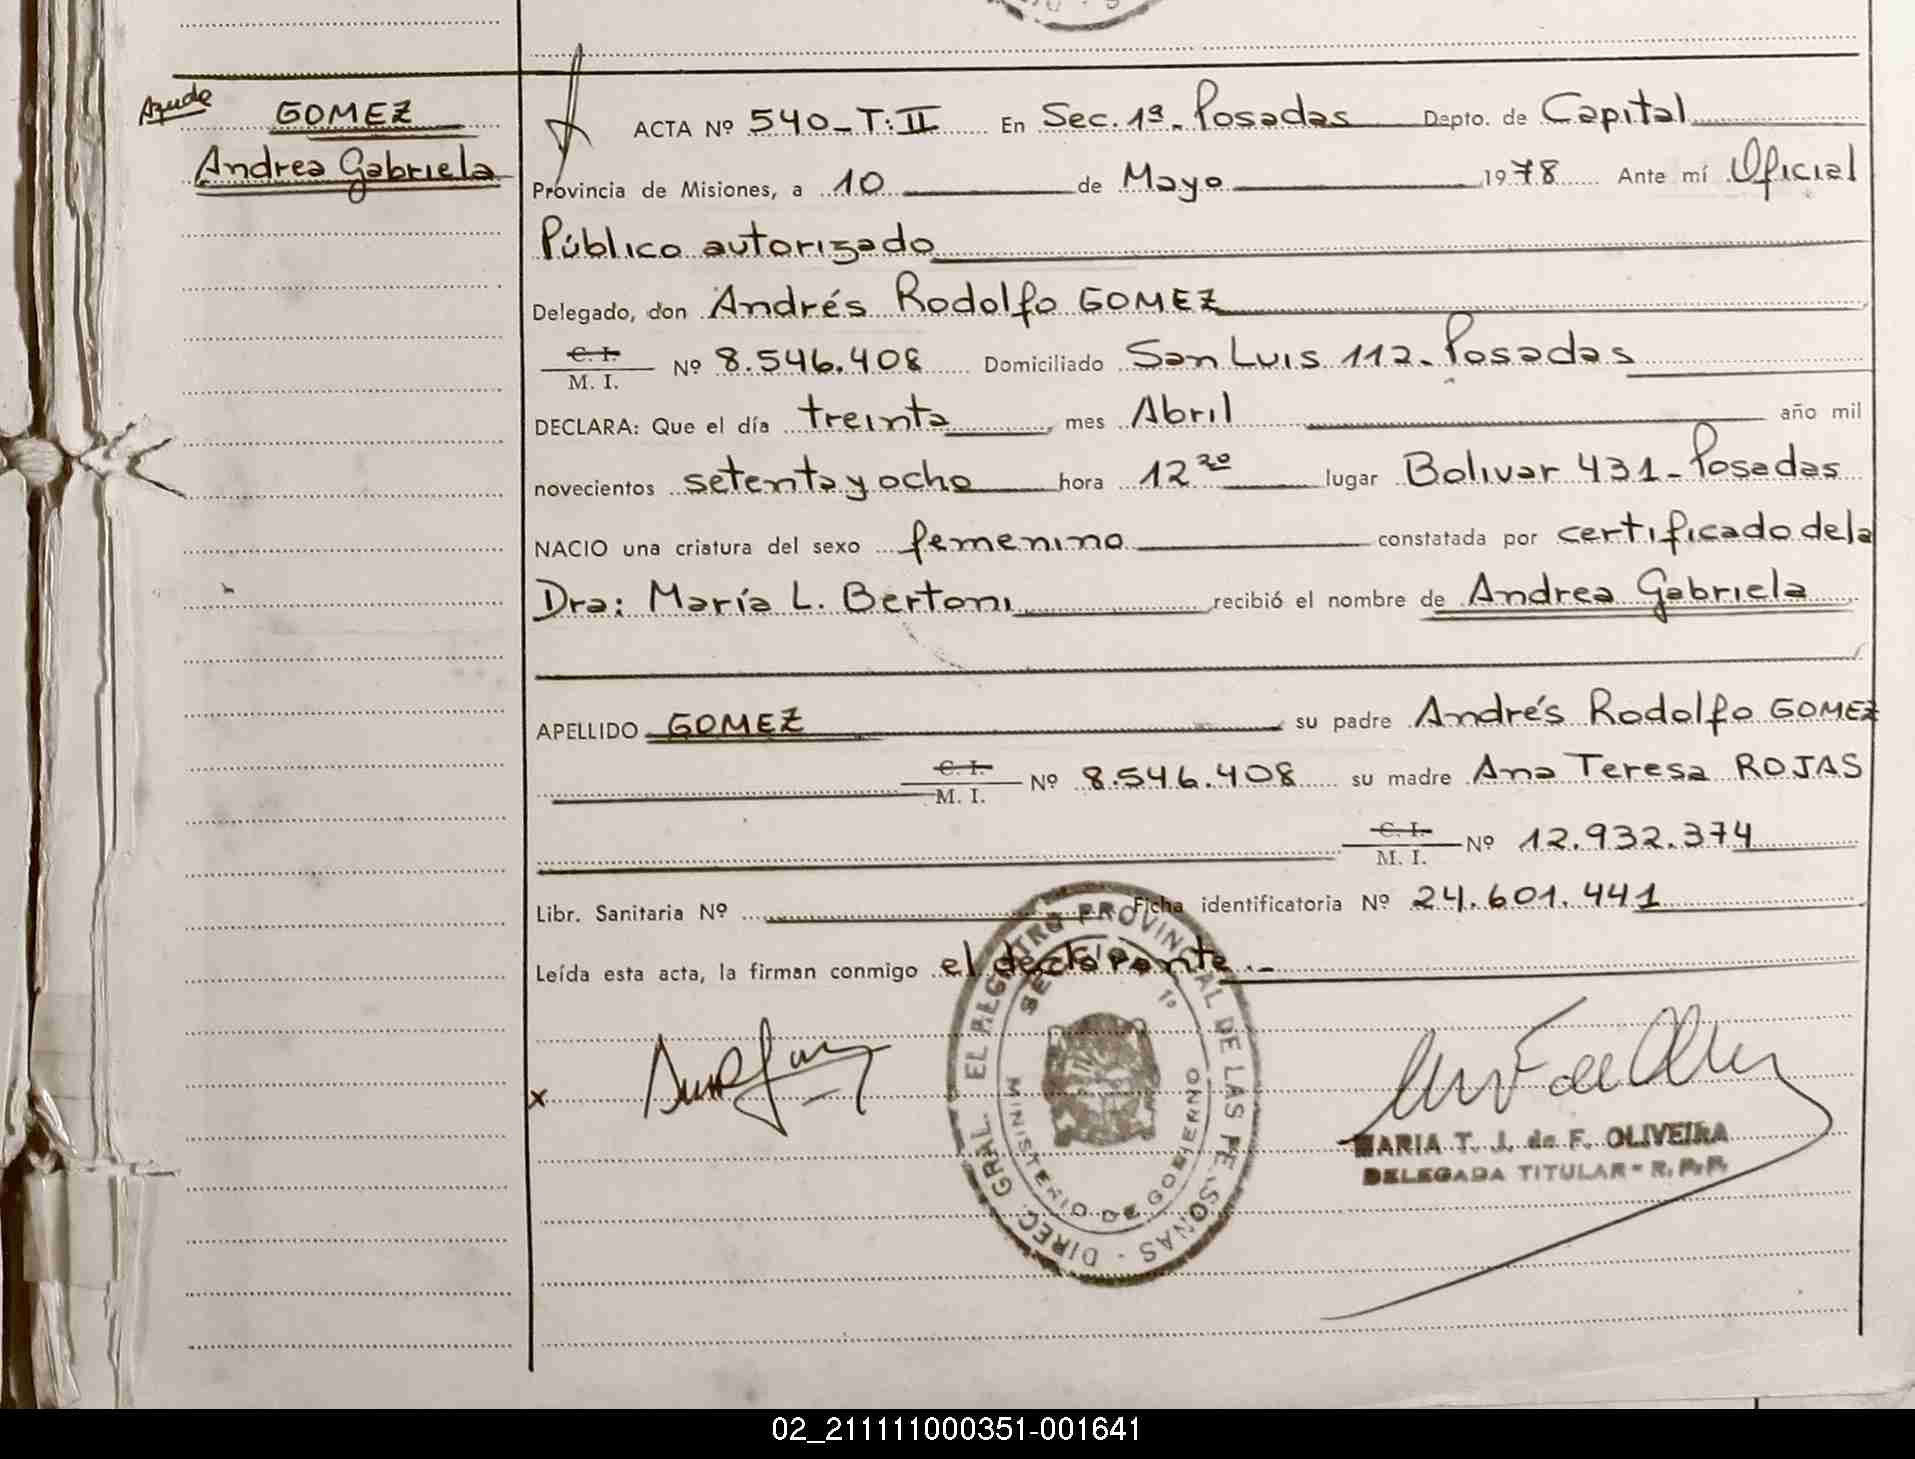 Ayude
GOMEZ
Andrea Gabriela
ACTA Nº 540_T:II En Sec. 1ª_ Posadas Depto. de Capital
Provincia de Misiones, a 10 de Mayo 1978 Ante mí Oficial
Público autorizado
Delegado, don Andrés Rodolfo GOMEZ
C. I.
M. I. Nº 8.546.408 Domiciliado San Luis 112_ Posadas
DECLARA: Que el día treinta, mes Abril año mil
novecientos setenta y ocho hora 12 20 lugar Bolivar 431_ Posadas
NACIO una criatura del sexo femenino constatada por certificado dela
Dra: María L. Bertoni recibió el nombre de Andrea Gabriela
APELLIDO GOMEZ su padre Andrés Rodolfo GOMEZ
C. I.
M. I. Nº 8.546.408 su madre Ana Teresa ROJAS
C. I.
M. I. Nº 12.932.374
Libr. Sanitaria Nº Ficha identificatoria Nº 24.601.441
Leída esta acta, la firman conmigo el declarante._
x
DIREC. GRAL. EL REGISTRO PROVINCIAL DE LAS PERSONAS
1º
MINISTERIO DE GOBIERNO
MARIA T. J. de F. OLIVEIRA
DELEGADA TITULAR - R. P. P.
02_211111000351-001641